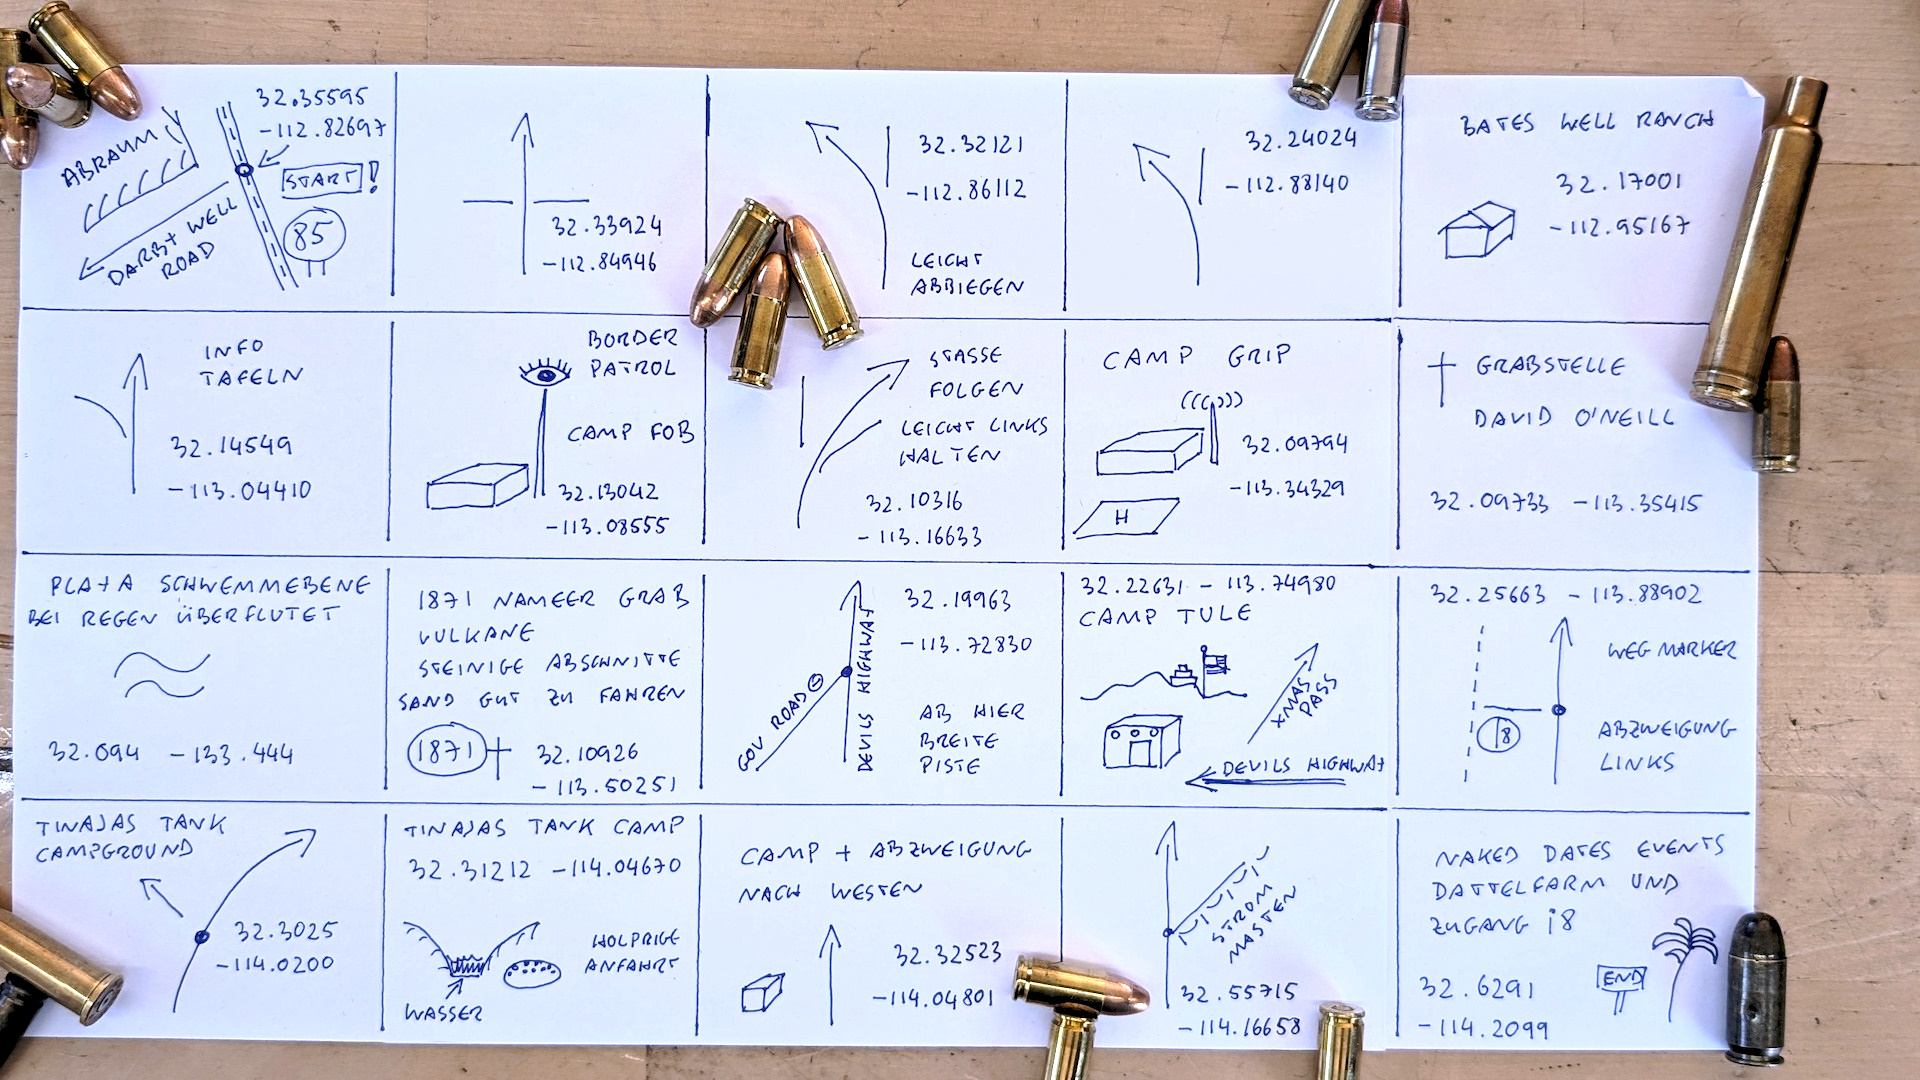 32.35595
-112.82697
ABRAUM
START!
85
DARBY WELL
ROAD
32.33924
-112.84946
32.32121
-112.86112
LEICHT
ABBIEGEN
32.24024
-112.88140
BATES WELL RANCH
32.17001
-112.95167
INFO
TAFELN
32.14549
-113.04410
BORDER
PATROL
CAMP FOB
32.13042
-113.08555
STASSE
FOLGEN
LEICHT LINKS
HALTEN
32.10316
-113.16633
CAMP GRIP
(((,)))
32.09794
-113.34329
H
GRABSTELLE
DAVID O'NEILL
32.09733 -113.35415
PLAYA SCHWEMMEBENE
BEI REGEN ÜBERFLUTET
32.094 -133.444
1871 NAMEER GRAB
VULKANE
STEINIGE ABSCHNITTE
SAND GUT ZU FAHREN
1871
32.10926
-113.50251
32.19963
-113.72830
GOV ROAD
DEVILS HIGHWAY
AB HIER
BREITE
PISTE
32.22631 -113.74980
CAMP TULE
XMAS
PASS
DEVILS HIGHWAY
32.25663 -113.88902
WEG MARKER
18
ABZWEIGUNG
LINKS
TINAJAS TANK
CAMPGROUND
32.3025
-114.0200
TINAJAS TANK CAMP
32.31212 -114.04670
HOLPRIGE
ANFAHRT
WASSER
CAMP + ABZWEIGUNG
NACH WESTEN
32.32523
-114.04801
STROM
MASTEN
32.55715
-114.16658
NAKED DATES EVENTS
DATTELFARM UND
ZUGANG i8
END
32.6291
-114.2099